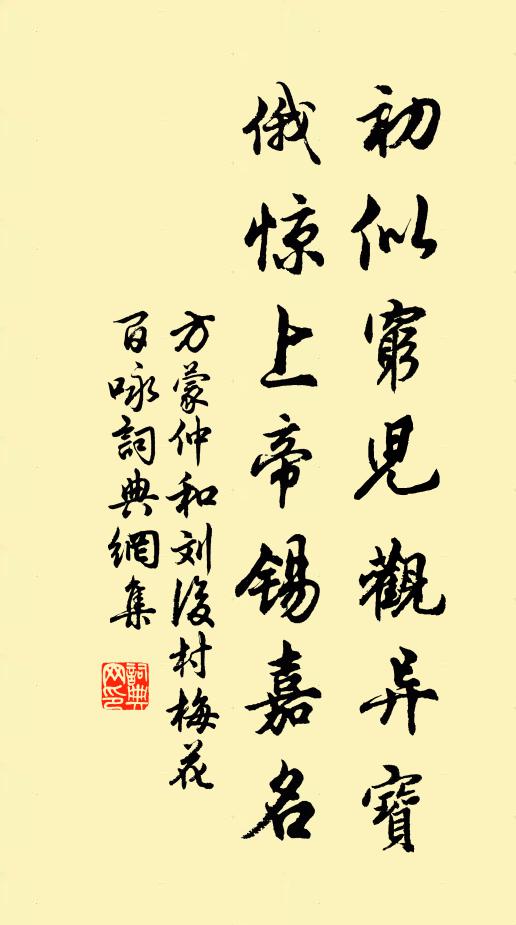 初似窮児觀异寶
俄惊上帝锡嘉名
方蒙仲和刘後村梅花
百咏詞典網集
詞典网印